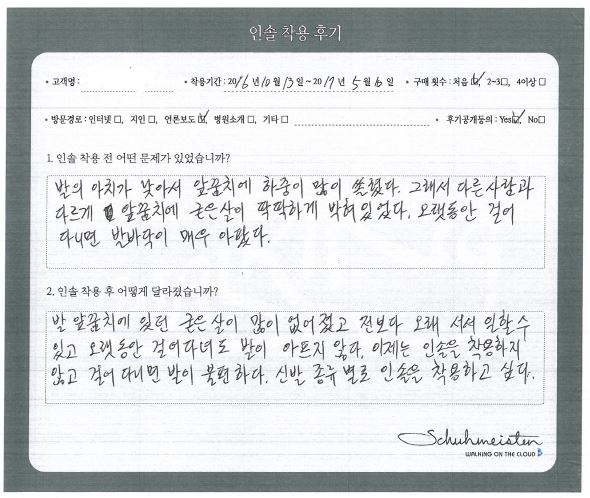 인솔 착용 후기
• 고객명 : • 착용기간 : 2016년 10월 13일 ~ 2017년 5월 16일 • 구매 횟수 : 처음 ☑, 2~3□, 4이상 □
• 방문경로 : 인터넷 □, 지인 □, 언론보도 ☑ 병원소개 □, 기타 □ • 후기공개동의 : Yes☑ No□
1. 인솔 착용 전 어떤 문제가 있었습니까?
발의 아치가 낮아서 앞꿈치에 하중이 많이 쏠렸다. 그래서 다른 사람과
다르게 앞꿈치에 굳은살이 딱딱하게 박혀있었다. 오랫동안 걸어
다니면 발바닥이 매우 아팠다.
2. 인솔 착용 후 어떻게 달라졌습니까?
발 앞꿈치에 있던 굳은살이 많이 없어졌고 전보다 오래 서서 일할수
있고 오랫동안 걸어다녀도 발이 아프지 않다. 이제는 인솔을 착용하지
않고 걸어 다니면 발이 불편하다. 신발 종류별로 인솔을 착용하고 싶다.
Schuhmeister
WALKING ON THE CLOUD